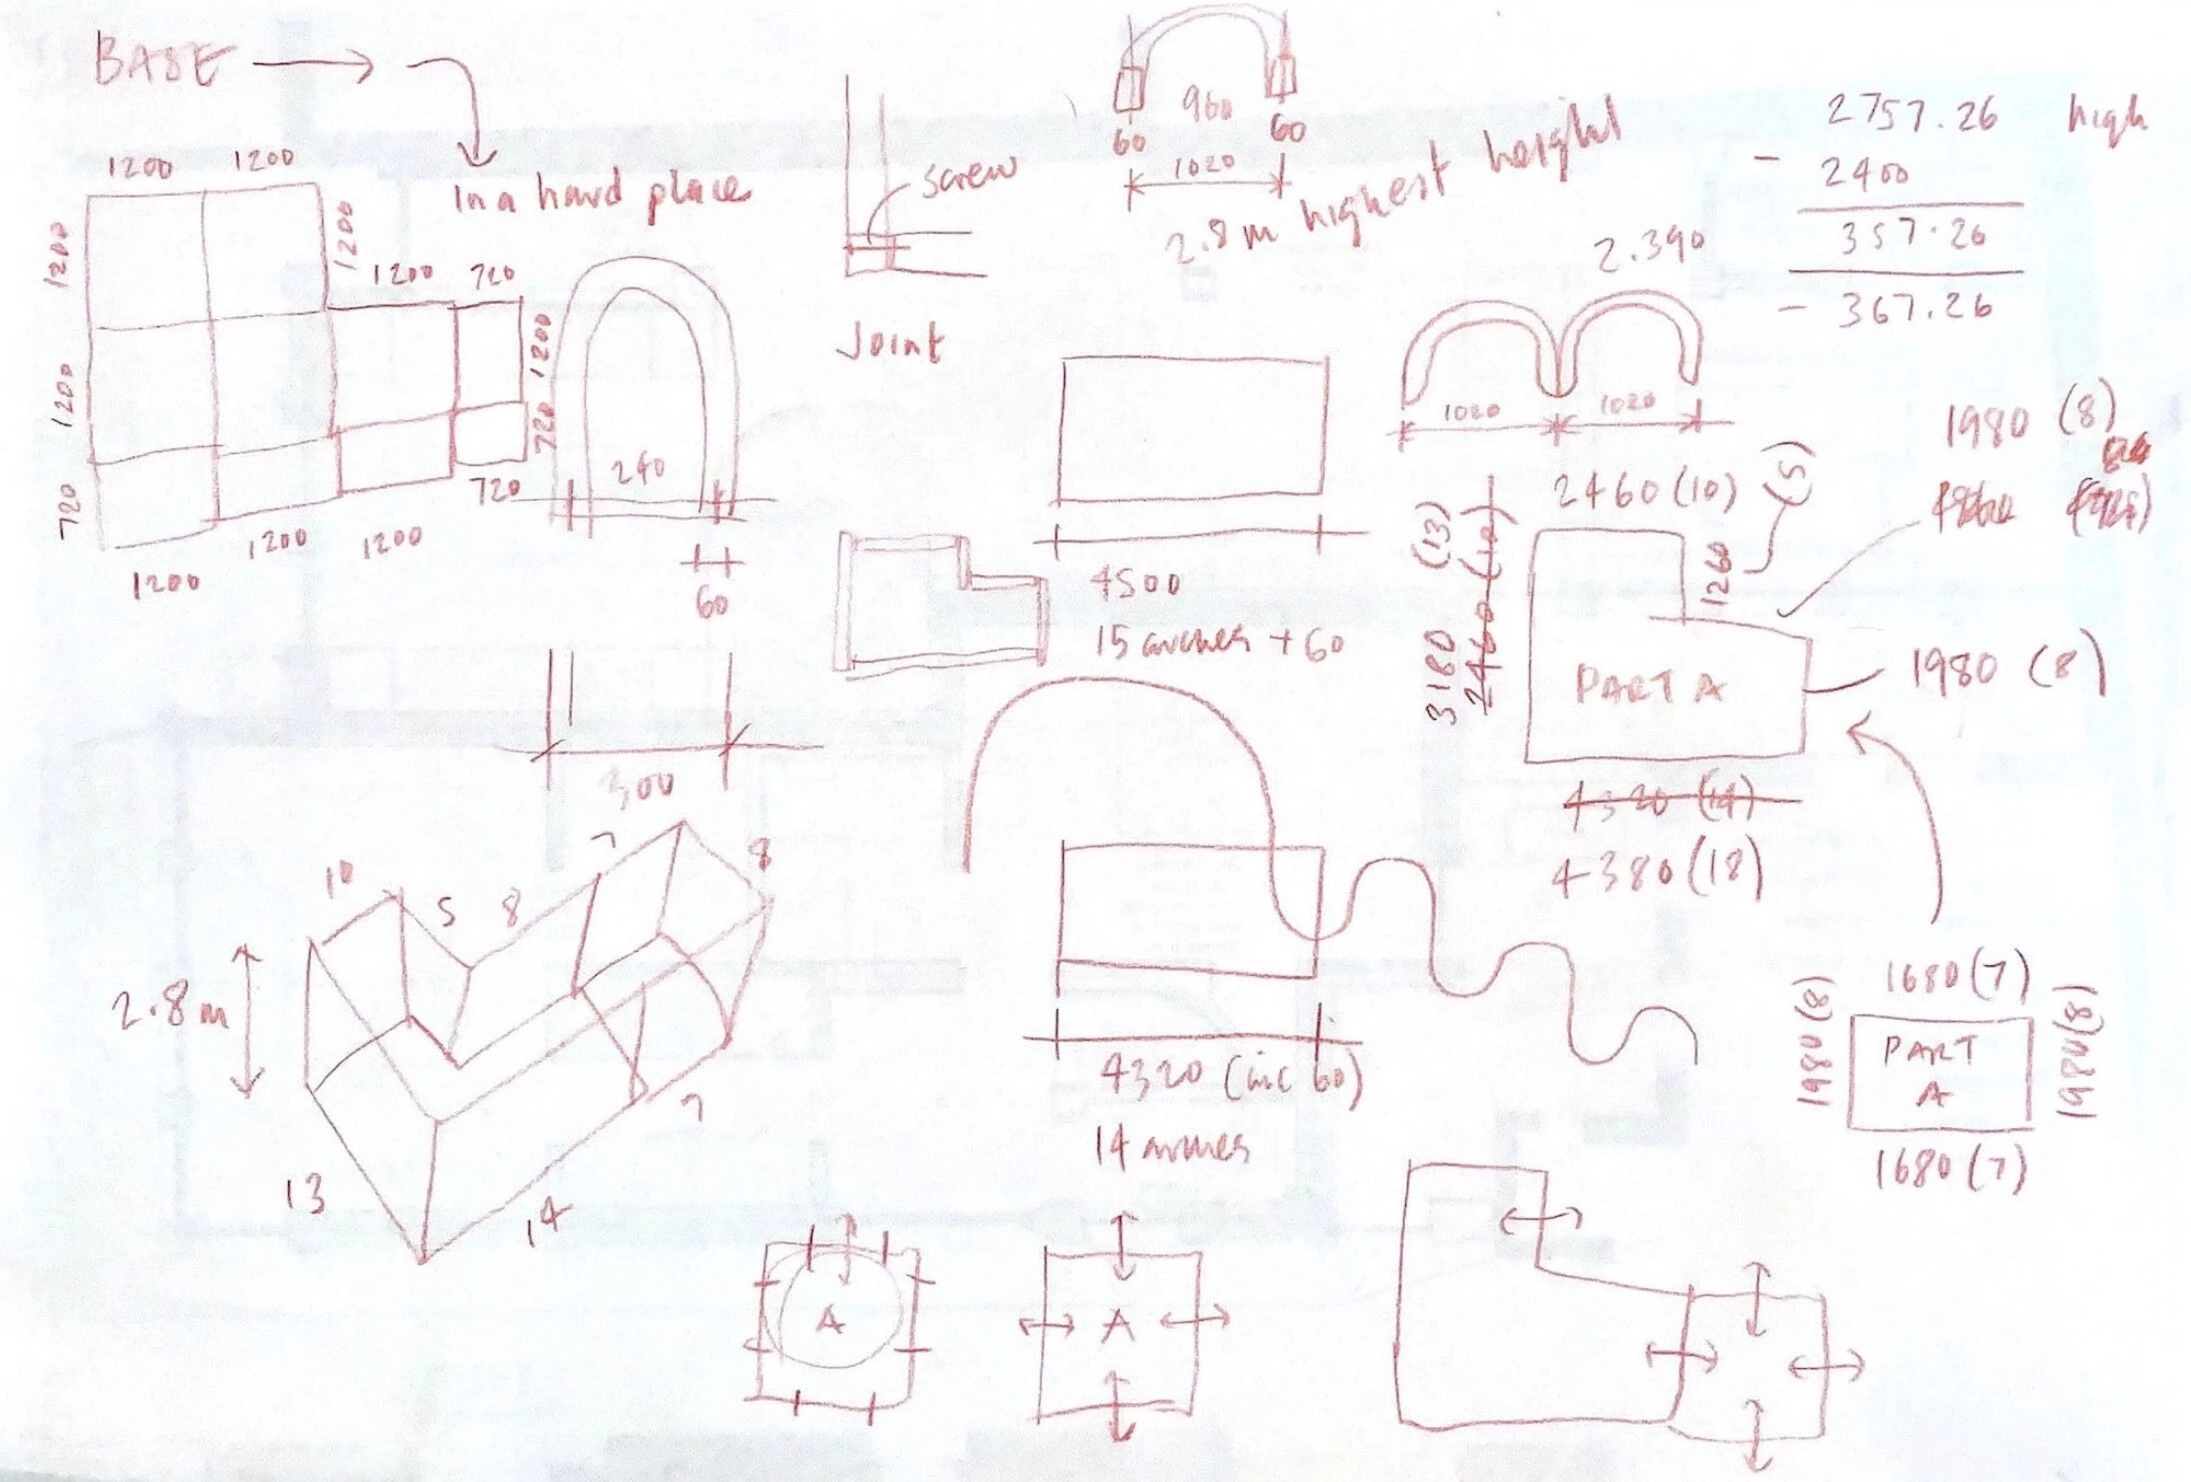 BASE
In a hard place
1200 1200
1200
1200
1200 720
1200
1200
720
720
720
1200 1200
1200
240
60
300
screw
Joint
960
60 60
1020
2.8 m highest height
2.390
1020 1020
2757.26 high
- 2400
357.26
- 367.26
4500
15 arches + 60
2460 (10)
(5)
1260
1980 (8)
3180 (13)
2460 (10)
PART A
1980 (8)
4320 (14)
4380 (18)
10
5
8
7
8
2.8 m
13
14
7
4320 (inc 60)
14 arches
1680 (7)
1980 (8)
PART
A
1980 (8)
1680 (7)
A
A